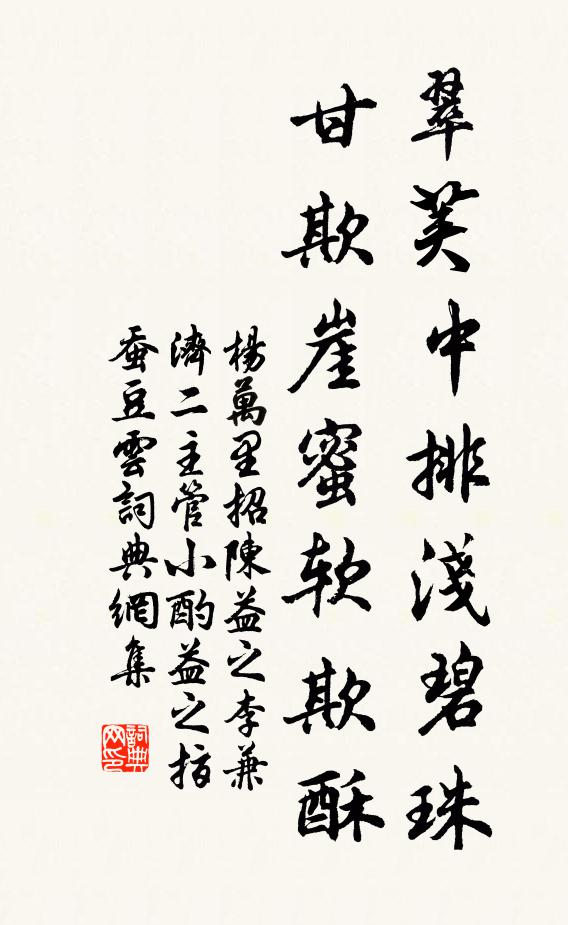 翠荚中排淺碧珠
甘欺崖蜜软欺酥
楊萬里招陳益之李兼
濟二主管小酌益之指
蚕豆雲詞典網集
詞典网印